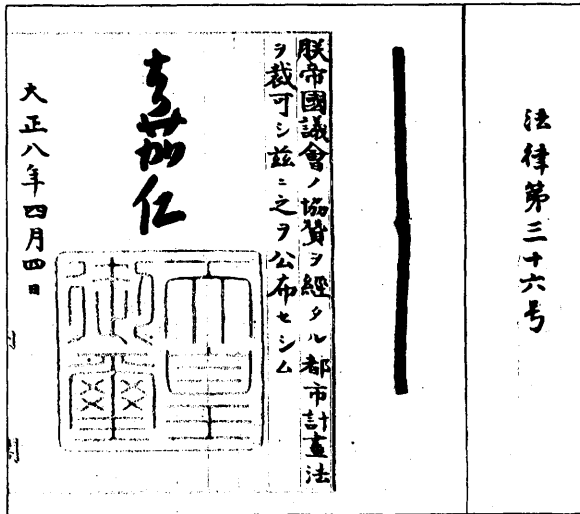 法律第三十六号
朕帝國議會ノ協賛ヲ經タル都市計畫法
ヲ裁可シ茲ニ之ヲ公布セシム
嘉仁
天皇
御璽
大正八年四月四日